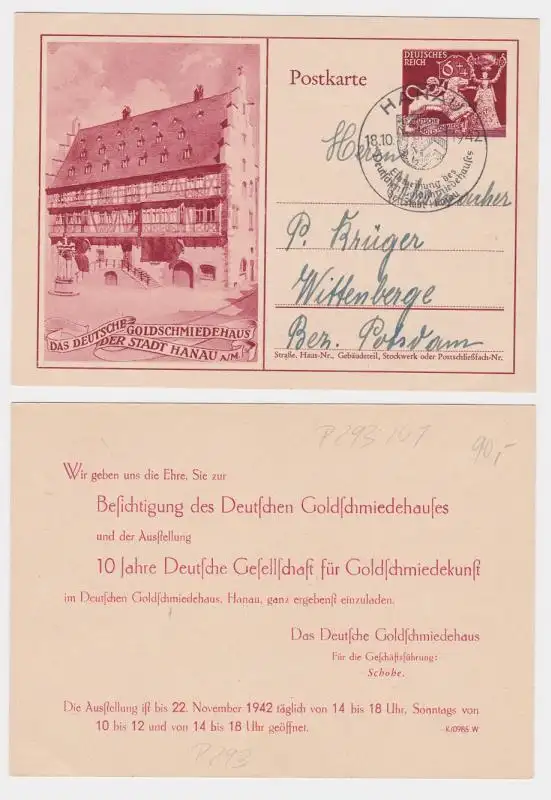 DEUTSCHES
REICH
6+4
Postkarte
HANAU
18.10.1942
Einweihung des
Deutschen Goldschmiedehauses
Herrn
P. Krüger
Wittenberge
Bez. Potsdam
Straße, Haus-Nr., Gebäudeteil, Stockwerk oder Postschließfach-Nr.
DAS DEUTSCHE GOLDSCHMIEDEHAUS
DER STADT HANAU A/M.
P 293
90,-
Wir geben uns die Ehre, Sie zur
Beſichtigung des Deutſchen Goldſchmiedehauſes
und der Ausſtellung
10 Jahre Deutſche Geſellſchaft für Goldſchmiedekunſt
im Deutſchen Goldſchmiedehaus, Hanau, ganz ergebenſt einzuladen.
Das Deutſche Goldſchmiedehaus
Für die Geſchäftsführung:
Schohe.
Die Ausſtellung iſt bis 22. November 1942 täglich von 14 bis 18 Uhr, Sonntags von
10 bis 12 und von 14 bis 18 Uhr geöffnet.
K/0985 W
P 293